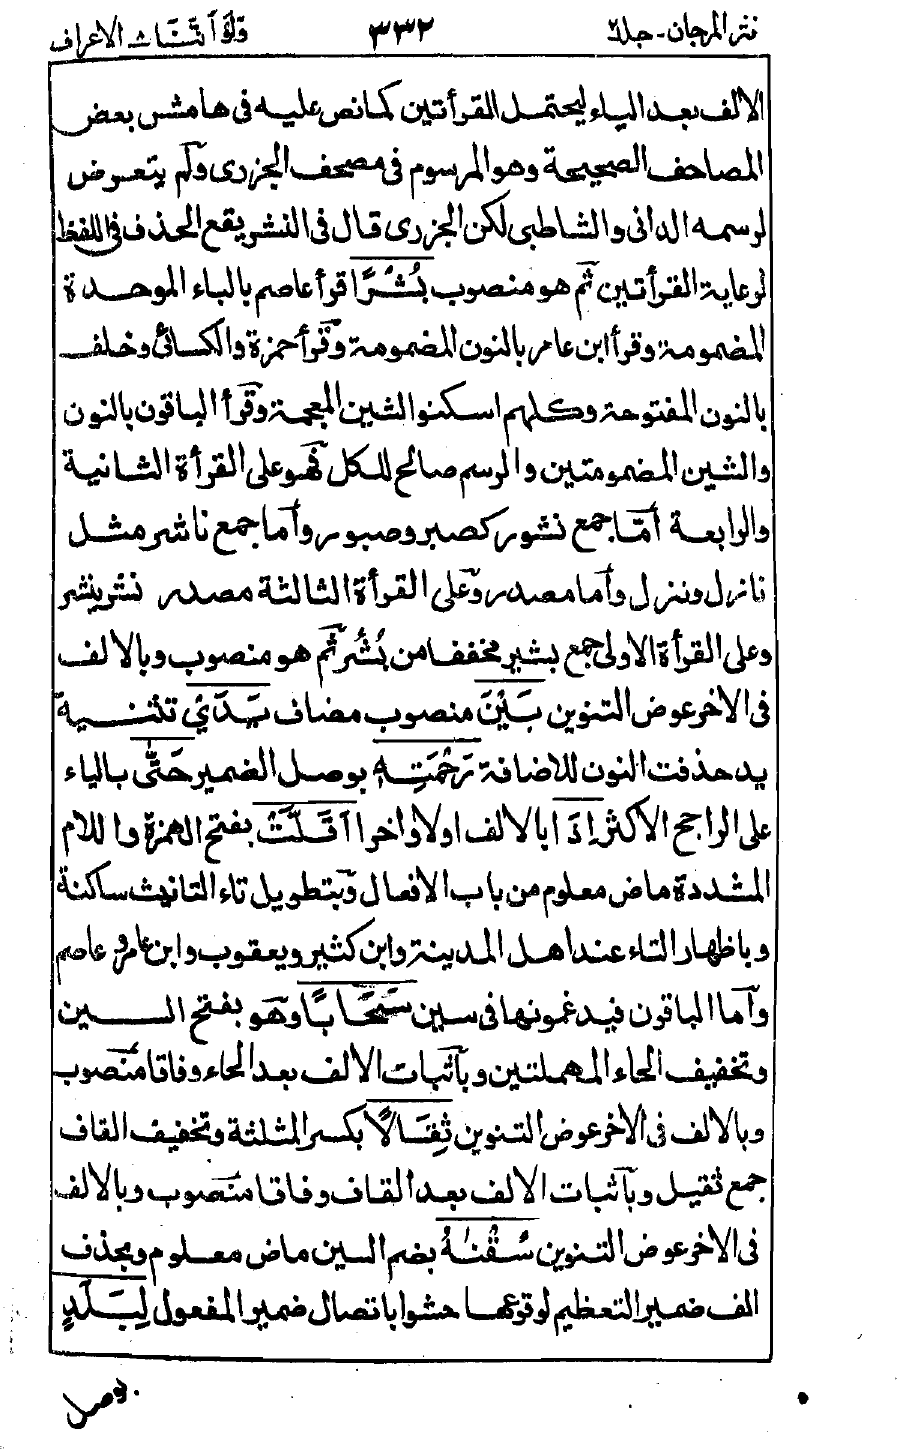 نثر المرجان - جلد ٢ ٣٣٢ ولو أننا ٨ الاعراف
الالف بعد الياء ليحتمل القرأتين كما نص عليه فى هامش بعض
المصاحف الصحيحة وهو المرسوم فى مصحف الجزرى ولم يتعرض
لرسمه الدانى والشاطبى لكن الجزرى قال فى النشر يقع الحذف فى اللفظ
لرعاية القرأتين ثم هو منصوب بُشْرًا قرأ عاصم بالباء الموحدة
المضمومة وقرأ ابن عامر بالنون المضمومة وقرأ حمزة والكسائى وخلف
بالنون المفتوحة وكلهم اسكنوا الشين المعجمة وقرأ الباقون بالنون
والشين المضمومتين والرسم صالح للكل فهو على القرأة الثانية
والرابعة أما جمع نشور كصبر وصبور وأما جمع ناشر مثل
نازل ونزل وأما مصدر وعلى القرأة الثالثة مصدر نشر ينشر
وعلى القرأة الاولى جمع بشير مخففا من بُشُر ثم هو منصوب وبالالف
فى الاخر عوض التنوين بَيْنَ منصوب مضاف يَدَيْ تثنية
يد حذفت النون للاضافة رَحْمَتِهٖ بوصل الضمير حَتّٰى بالياء
على الراجح الاكثر اِذَا بالالف اولا واخرا اَقَلَّتْ بفتح الهمزة واللام
المشددة ماض معلوم من باب الافعال وبتطويل تاء التانيث ساكنة
وباظهار التاء عند اهل المدينة وابن كثير ويعقوب وابن عامر وعاصم
وأما الباقون فيدغمونها فى سين سَحَابًا وهو بفتح السين
وتخفيف الحاء المهملتين وبآثبات الالف بعد الحاء وفاقا منصوب
وبالالف فى الاخر عوض التنوين ثِقَالًا بكسر المثلثة وتخفيف القاف
جمع ثقيل وبآثبات الالف بعد القاف وفاقا منصوب وبالالف
فى الاخر عوض التنوين سُقْنٰهُ بضم السين ماض معلوم وبحذف
الف ضمير التعظيم لوقوعها حشوا باتصال ضمير المفعول لِبَلَدٍ
بوصل